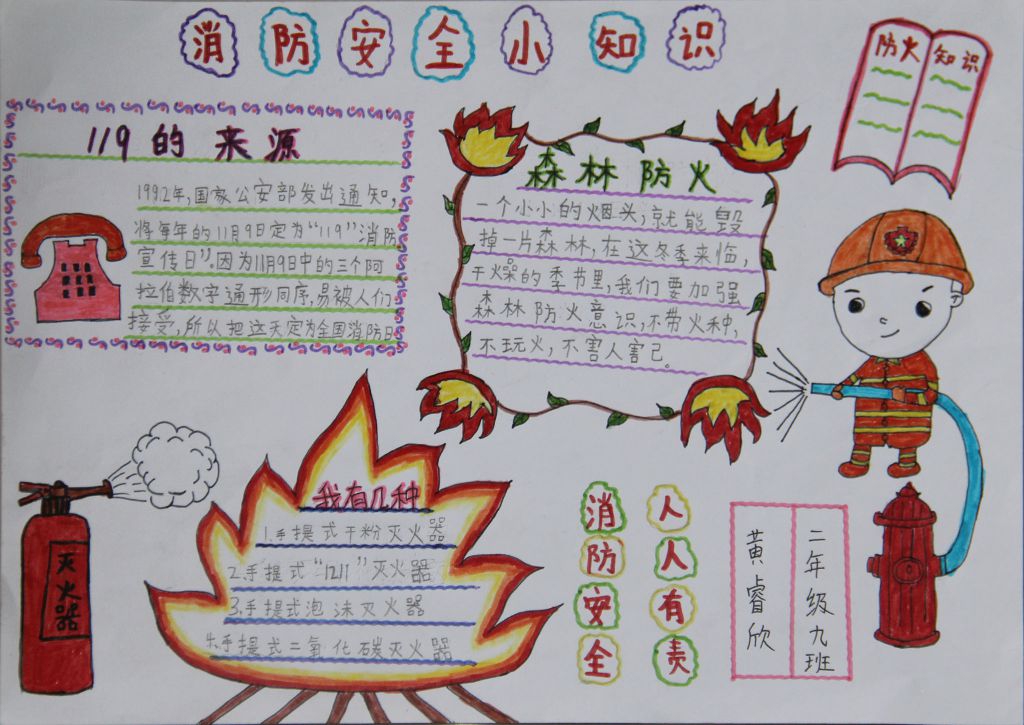 消防安全小知识
防火 知识
119的来源
1992年,国家公安部发出通知,
将每年的11月9日定为“119”消防
宣传日”。因为11月9日中的三个阿
拉伯数字通形同序,易被人们
接受,所以把这天定为全国消防日
森林防火
一个小小的烟头,就能毁
掉一片森林,在这冬季来临,
干燥的季节里,我们要加强
森林防火意识,不带火种,
不玩火,不害人害己。
灭火器
我有几种
1.手提式干粉灭火器
2.手提式“1211”灭火器
3.手提式泡沫灭火器
4.手提式二氧化碳灭火器
消防安全
人人有责
二年级九班
黄睿欣